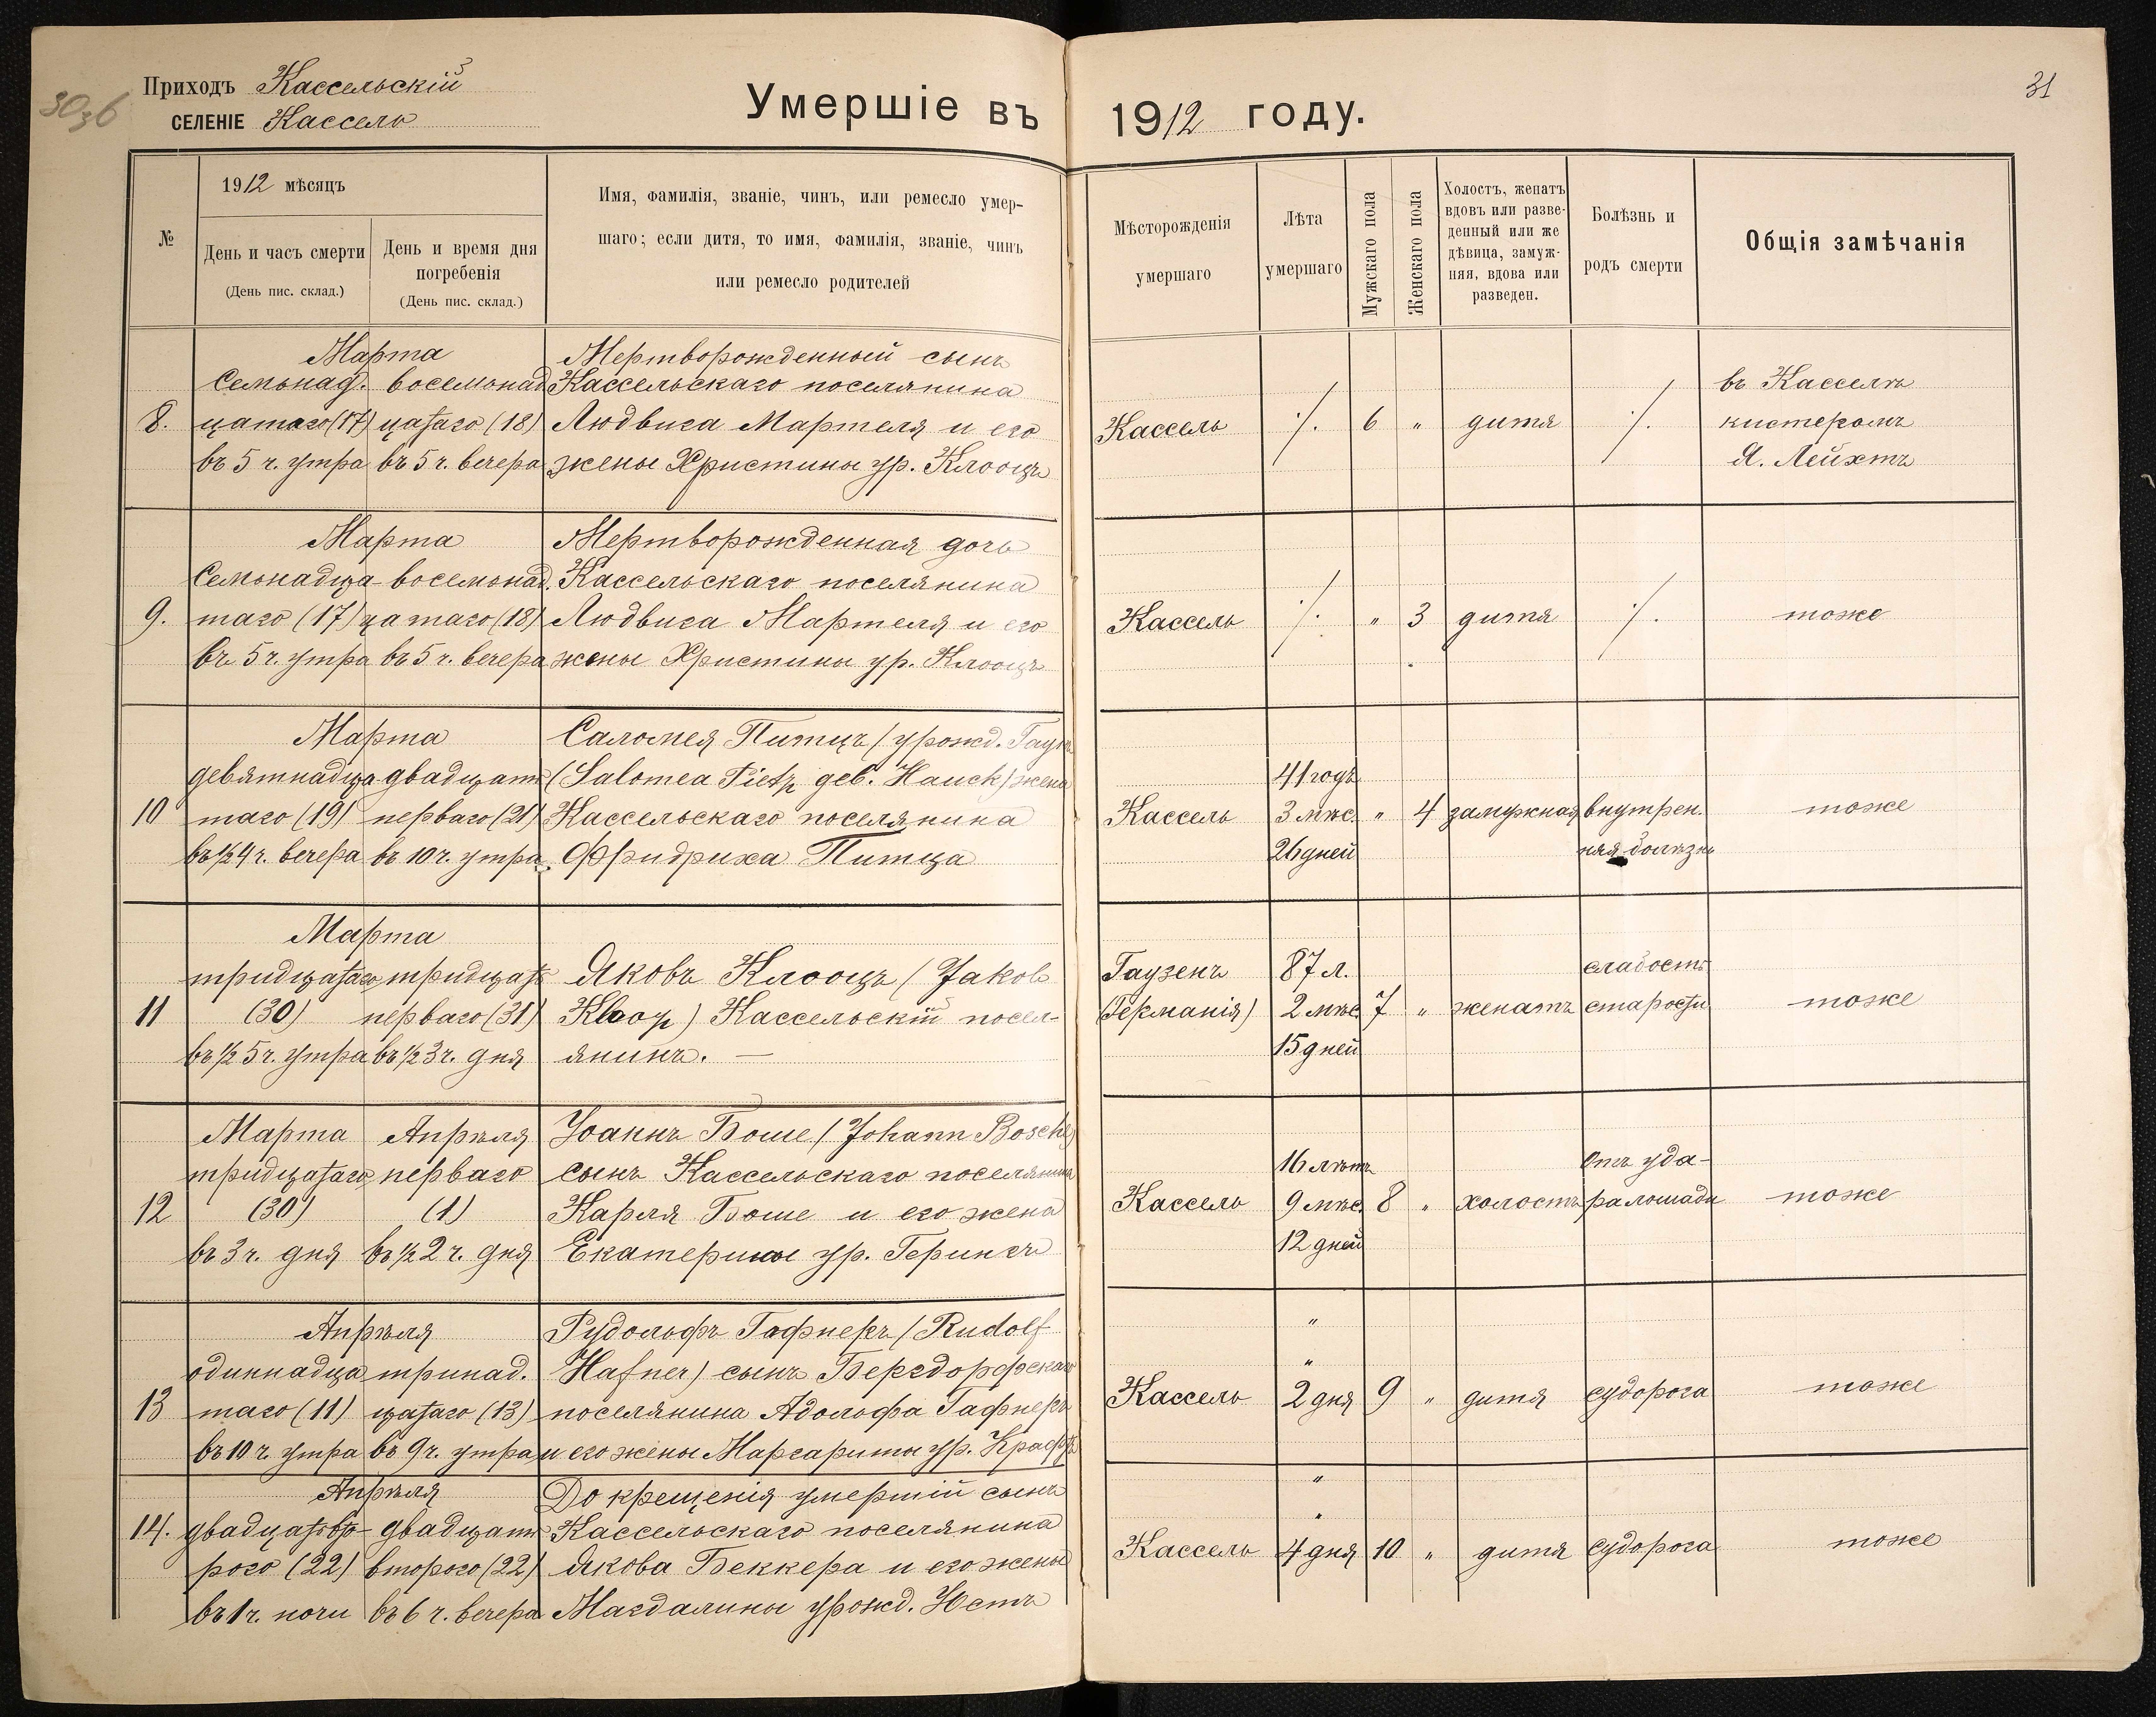 30 зб
Приходъ Кассельскій
СЕЛЕНІЕ Кассель
Умершіе въ 1912 году.
31
№
1912 мѣсяцъ
День и часъ смерти
(День пис. склад.)
День и время дня
погребенія
(День пис. склад.)
Имя, фамилія, званіе, чинъ, или ремесло умер-
шаго; если дитя, то имя, фамилія, званіе, чинъ
или ремесло родителей
Мѣсторожденія
умершаго
Лѣта
умершаго
Мужскаго пола
Женскаго пола
Холостъ, женатъ
вдовъ или разве-
денный или же
дѣвица, замуж-
няя, вдова или
разведен.
Болѣзнь и
родъ смерти
Общія замѣчанія
8.
Марта
Семьнад.
цатаго (17)
въ 5 ч. утра
восемьнад
цатаго (18)
въ 5 ч. вечера
Мертворожденный сынъ
Кассельскаго поселянина
Людвига Мартеля и его
жены Христины ур. Клооцъ
Кассель
·/.
6
"
дитя
·/.
въ Касселѣ
кистеромъ
Я. Лейхтъ
9.
Марта
Семьнадца-
таго (17)
въ 5 ч. утра
восемьнад.
цатаго (18)
въ 5 ч. вечера
Мертворожденная дочь
Кассельскаго поселянина
Людвига Мартеля и его
жены Христины ур. Клооцъ
Кассель
·/.
"
3
дитя
·/.
тоже
10
Марта
девятнадца
таго (19)
въ ½4 ч. вечера
двадцать
перваго (21)
въ 10 ч. утра
Саломея Питцъ (урожд. Гаукъ
(Salomea Pietz geb. Hauck) жена
Кассельскаго поселянина
Фридриха Питца
Кассель
41 годъ
3 мѣс.
26 дней
"
4
замужная
внутрен.
няя болѣзнь
тоже
11
Марта
тридцатаго
(30)
въ ½5 ч. утра
тридцать
перваго (31)
въ ½3 ч. дня
Яковъ Клооцъ (Jakob
Klooz) Кассельскій посел-
янинъ. —
Гаузенъ
(Германія)
87 л.
2 мѣс.
15 дней
7
"
женатъ
слабость
старости
тоже
12
Марта
тридцатаго
(30)
въ 3 ч. дня
Апрѣля
перваго
(1)
въ ½2 ч. дня
Іоаннъ Боше (Johann Bosche)
сынъ Кассельскаго поселянина
Карля Боше и его жена
Екатерины ур. Герингъ
Кассель
16 лѣтъ
9 мѣс.
12 дней
8
"
холостъ
Отъ уда-
ра лошади
тоже
13
Апрѣля
одиннадца
таго (11)
въ 10 ч. утра
тринад.
цатаго (13)
въ 9 ч. утра
Рудольфъ Гафнеръ (Rudolf
Hafner) сынъ Бергдорфскаго
поселянина Адольфа Гафнеръ
и его жены Маргариты ур. Крафтъ
Кассель
"
"
2 дня
9
"
дитя
судорога
тоже
14.
Апрѣля
двадцатьвто-
рого (22)
въ 1 ч. ночи
двадцать
второго (22)
въ 6 ч. вечера
До крещенія умершій сынъ
Кассельскаго поселянина
Якова Беккера и его жены
Магдалины урожд. Юстъ
Кассель
"
"
4 дня
10
"
дитя
судорога
тоже